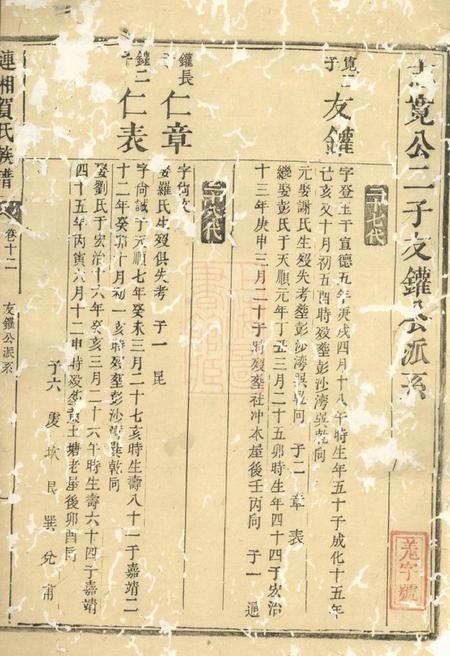 寬公二子友鑵公派系
寬二子 友鑵
字登玉于宣德五年庚戌四月十八午時生年五十于成化十五年
己亥又十月初五酉時歿葬彭沙灣巽乾向
元娶謝氏生歿失考葬彭沙灣巽乾向 子二 章 表
繼娶彭氏于天順元年丁丑三月二十五卯時生年四十四于宏治
十三年庚申三月二十子時歿葬社冲木屋後壬丙向 子一 迊
鑵長子 仁章
字尙文
娶羅氏生歿俱失考 子一 昆
鑵二子 仁表
字尙誠于天順七年癸未三月二十七亥時生壽八十一于嘉靖二
十二年癸卯十月初一亥時歿葬彭沙灣巽乾向
娶劉氏于宏治十六年癸亥三月二十六午時生壽六十四于嘉靖
四十五年丙寅六月十二申時歿葬土塘老屋後卯酉向
子六 崑 巽 兌 甫
連湘賀氏族譜
卷十二
友鑵公派系
羗字號